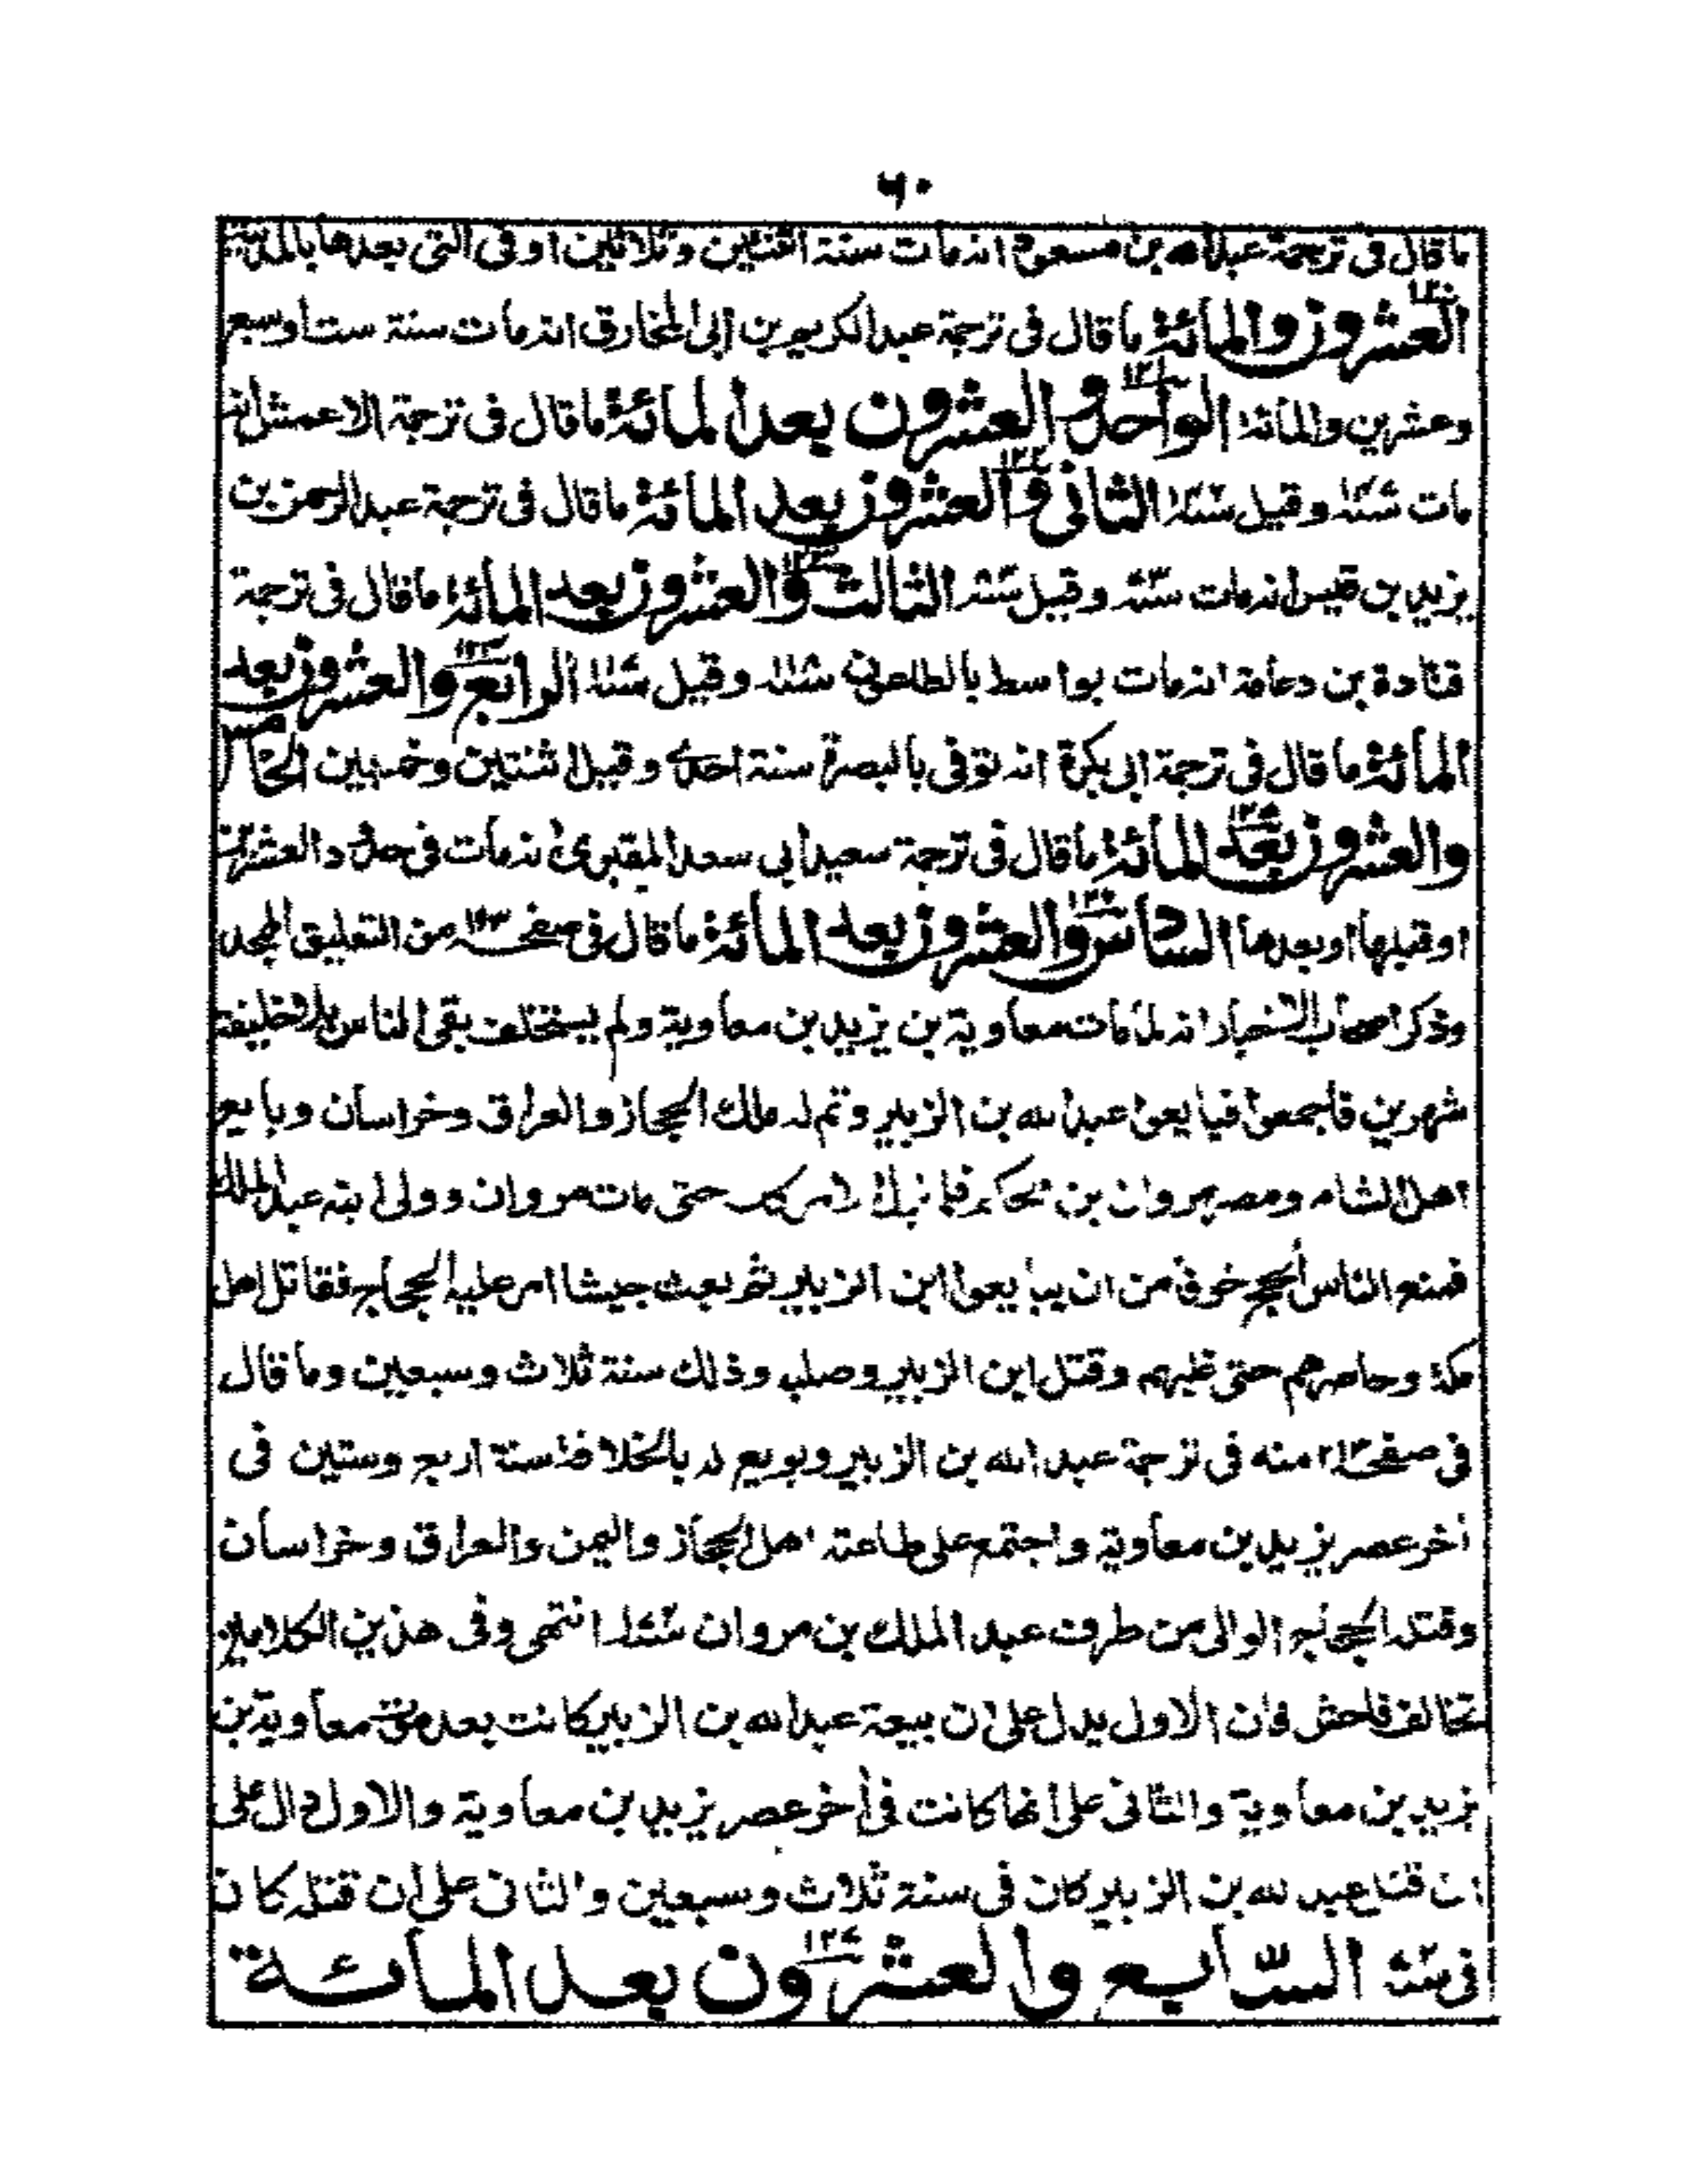 ٦٠
ما قال فى ترجمة عبد الله بن مسعود انه مات سنة اثنتين وثلاثين او فى التى بعدها بالمدينة
العشرون والمائة ما قال فى ترجمة عبد الكريم بن ابى المخارق انه مات سنة ست او سبع
وعشرين والمائة الواحد والعشرون بعد المائة ما قال فى ترجمة الاعمش انه
مات وقيل الثانى والعشرون بعد المائة ما قال فى ترجمة عبد الرحمن بن
يزيد بن قيس انه مات وقيل الثالث والعشرون بعد المائة ما قال فى ترجمة
قتادة بن دعامة انه مات بواسط بالطاعون وقيل الرابع والعشرون بعد
المائة ما قال فى ترجمة ابى بكرة انه توفى بالبصرة سنة احدى وقيل اثنتين وخمسين الخامس
والعشرون بعد المائة ما قال فى ترجمة سعيد ابى سعد المقبرى انه مات فى حدود العشرين
او قبلها او بعدها السادس والعشرون بعد المائة ما قال فى صفحه من التعليق الممجد
وذكر اصحاب الاخبار انه لما مات معاوية بن يزيد بن معاوية ولم يستخلف بقى الناس بلا خليفة
شهرين فاجمعوا فبايعوا عبد الله بن الزبير وتم له ملك الحجاز والعراق وخراسان وبايع
اهل الشام ومصر مروان بن الحكم فلم يزل الامر كذلك حتى مات مروان وولى ابنه عبد الملك
فمنع الناس الحج خوفا من ان يبايعوا ابن الزبير ثم بعث جيشا امر عليه الحجاج فقاتل اهل
مكة وحاصرهم حتى غلبهم وقتل ابن الزبير وصلبه وذلك سنة ثلاث وسبعين وما قال
فى صفحة منه فى ترجمة عبد الله بن الزبير وبويع له بالخلافة سنة اربع وستين فى
أخر عصر يزيد بن معاوية واجتمع على طاعته اهل الحجاز واليمن والعراق وخراسان
وقتله الحجاج الوالى من طرف عبد الملك بن مروان انتهى وفى هذين الكلامين
تخالف فاحش فان الاول يدل على ان بيعة عبد الله بن الزبير كانت بعد موت معاوية بن
يزيد بن معاوية والثانى على انها كانت فى أخر عصر يزيد بن معاوية والاول دال على
ان قتل عبد الله بن الزبير كان فى سنة ثلاث وسبعين والثانى على ان قتله كان
فى السابع والعشرون بعد المائة